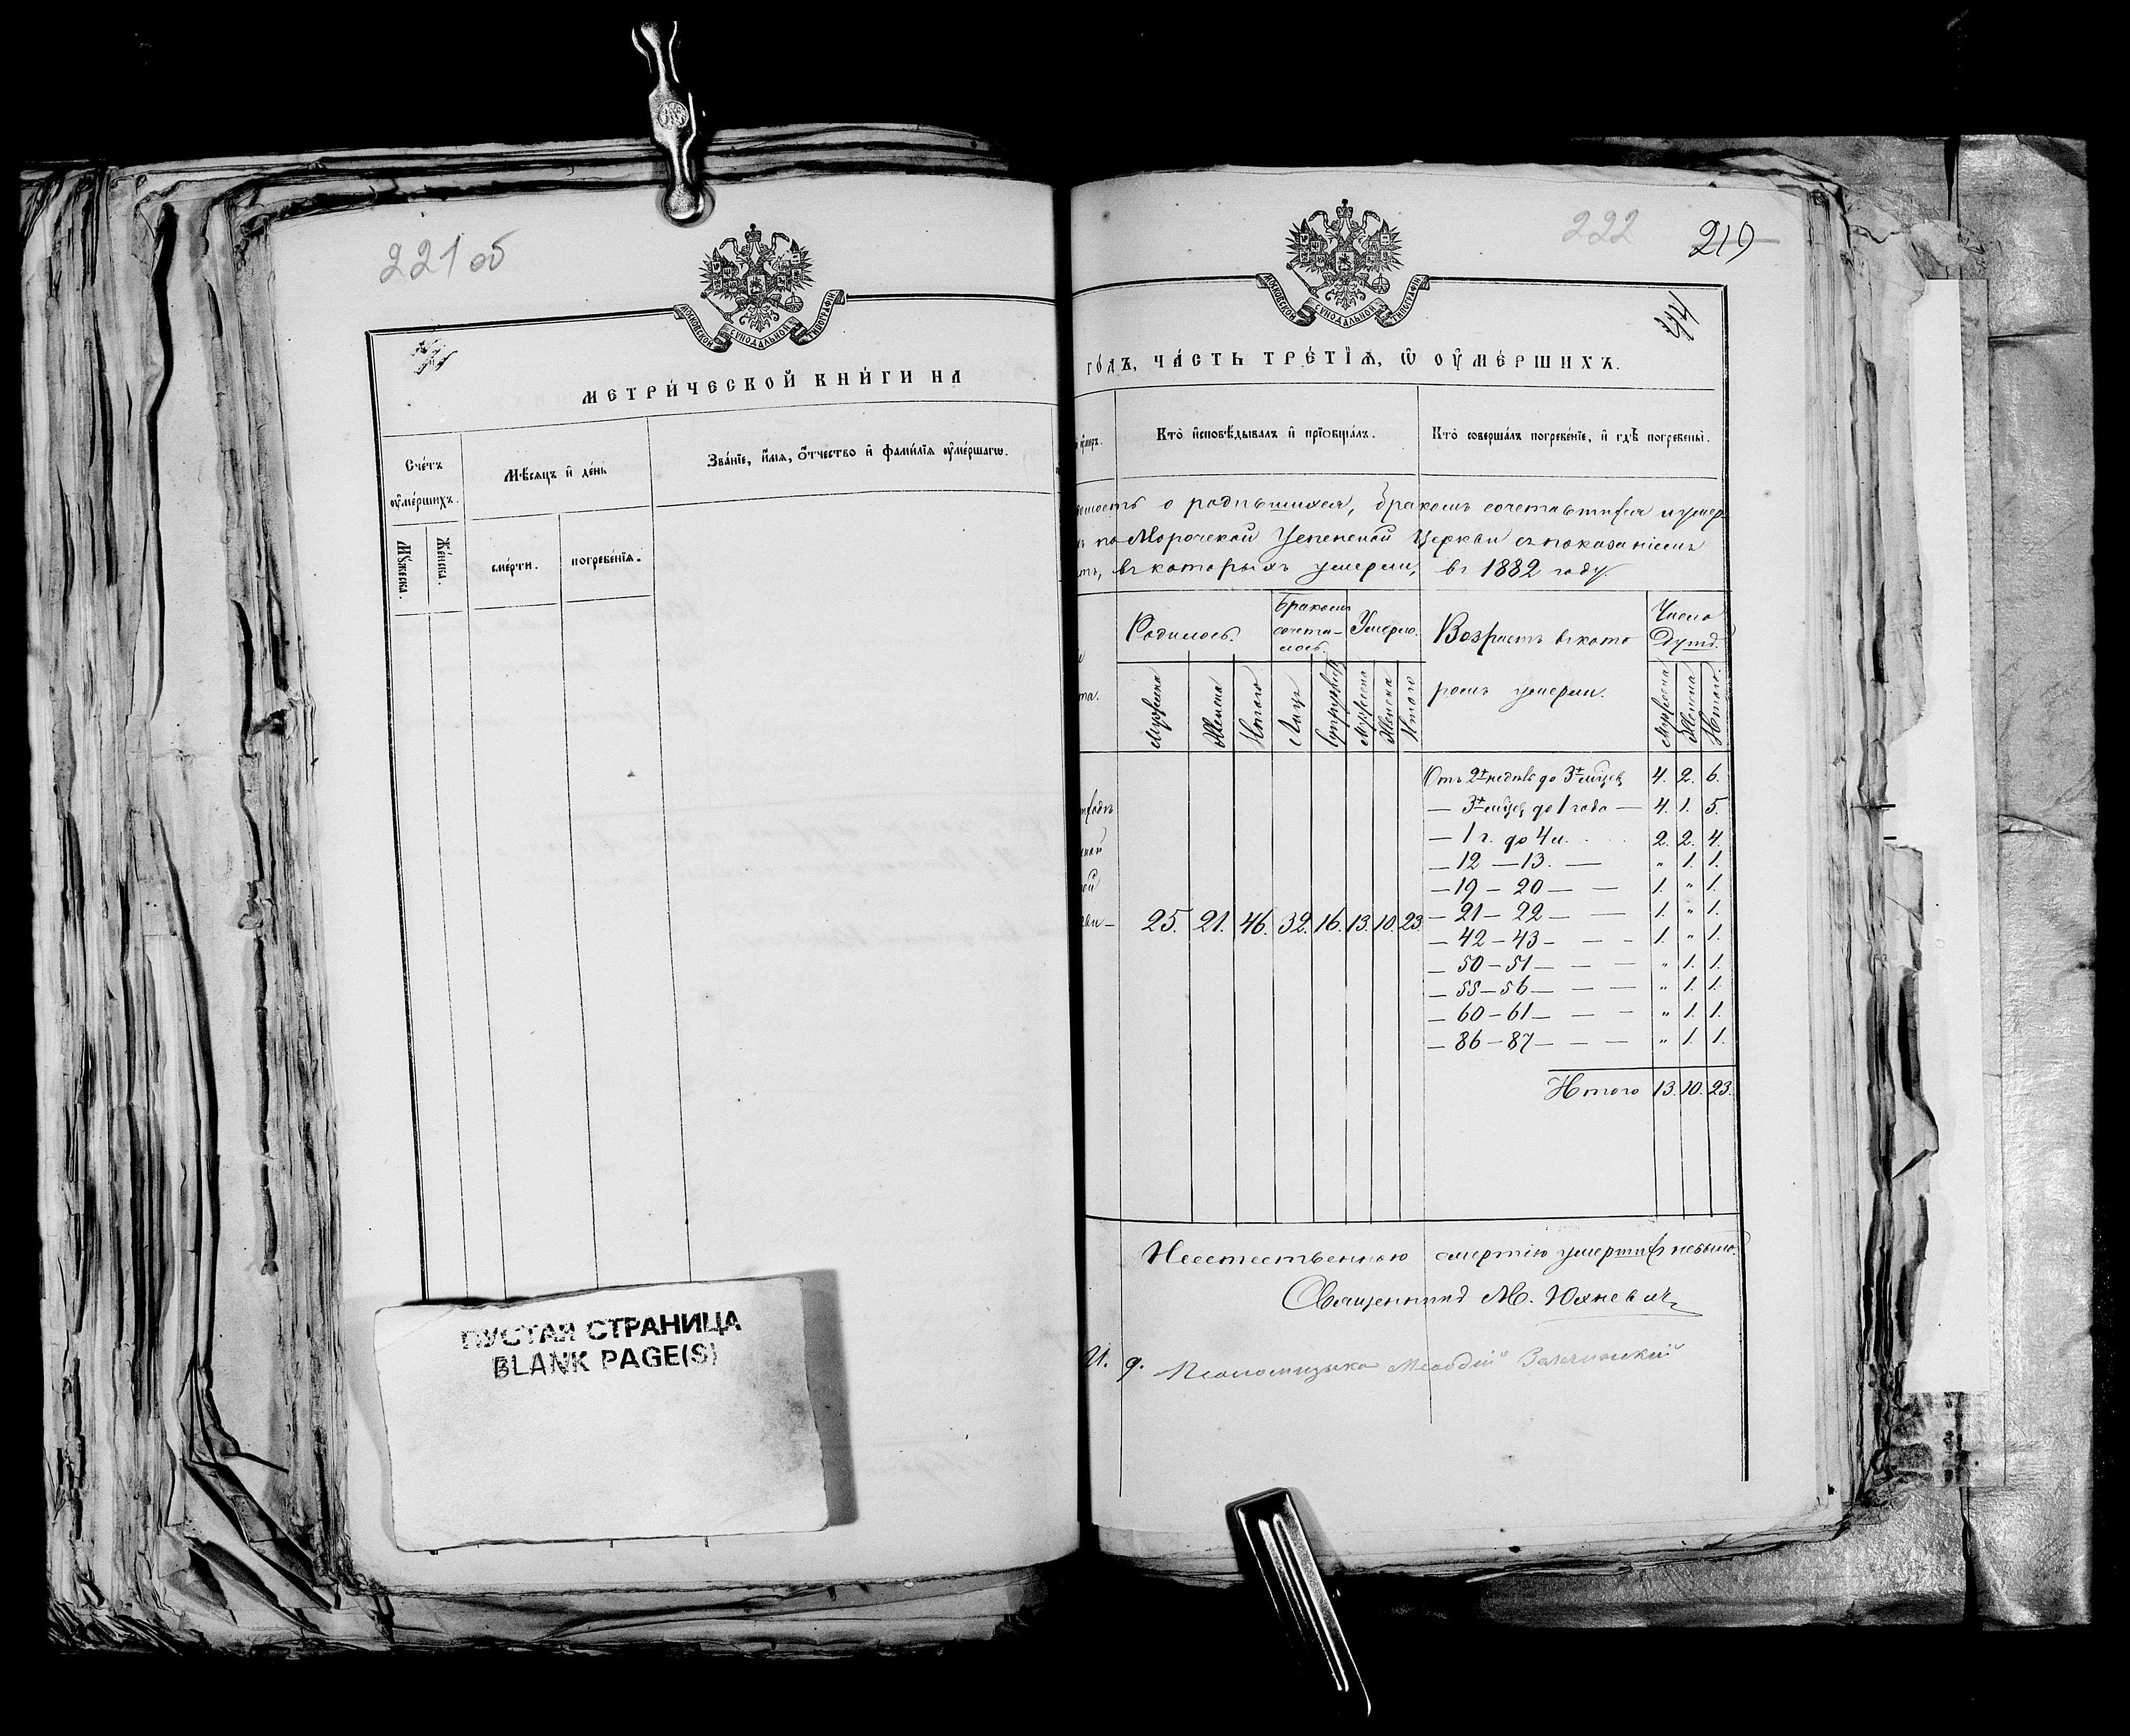 221 об
МОСКОВСКОЙ СѴНОДАЛЬНОЙ ТИПОГРАФІИ
МЕТРИ́ЧЕСКОЙ КНИ́ГИ НА
Сче́тъ оу҆ме́ршихъ.
Мѣ́сяцъ и҆ де́нь
Зва́нїе, и҆́мя, ѻ҆́тчество и҆ фами́лїя оу҆ме́ршагѡ.
Мꙋ́жеска.
Же́нска.
сме́рти.
погребе́нїя.
ПУСТАЯ СТРАНИЦА
BLANK PAGE(S)
222
219
44
МОСКОВСКОЙ СѴНОДАЛЬНОЙ ТИПОГРАФІИ
ГО́ДЪ, ЧА́СТЬ ТРЕ́ТЇѦ, Ѡ҆ ОУ҆МЕ́РШИХЪ.
Кто̀ и҆сповѣ́дывалъ и҆ прїѻбща́лъ.
Кто̀ соверша́лъ погребе́нїе, и҆ гдѣ̀ погребены̀.
о родившихся, бракомъ сочетавшихся и умер
по Морочской Успенской Церкви съ показаніемъ
въ которыхъ умерли, въ 1882 году.
Родилось.
Бракомъ сочета-лось.
Умерло.
Возрастъ въ кото
ромъ умерли.
Число Душъ.
Мужеска
Женска
Итого
Лицъ
Супружествъ
Мужеска
Женска
Итого
Мужеска
Женска
Итого.
Отъ 2хъ недѣль до 3хъ мѣсяц. 4. 2. 6.
— 3хъ мѣсяц. до 1 года — 4. 1. 5.
— 1 г. до 4 л. 2. 2. 4.
— 12 — 13. — „ 1. 1.
— 19 — 20 — — 1. „ 1.
— 21 — 22 — — 1. „ 1.
25. 21. 46. 32. 16. 13. 10. 23.
— 42 — 43 — — — 1. „ 1.
— 50 — 51 — — — „ 1. 1.
— 55 — 56 — — — „ 1. 1.
— 60 — 61 — — — „ 1. 1.
— 86 — 87 — — — „ 1. 1.
Итого 13. 10. 23.
Неестественною смертію умершихъ небыло.
Священникъ М. Юхневичъ
И. д. Псаломщика